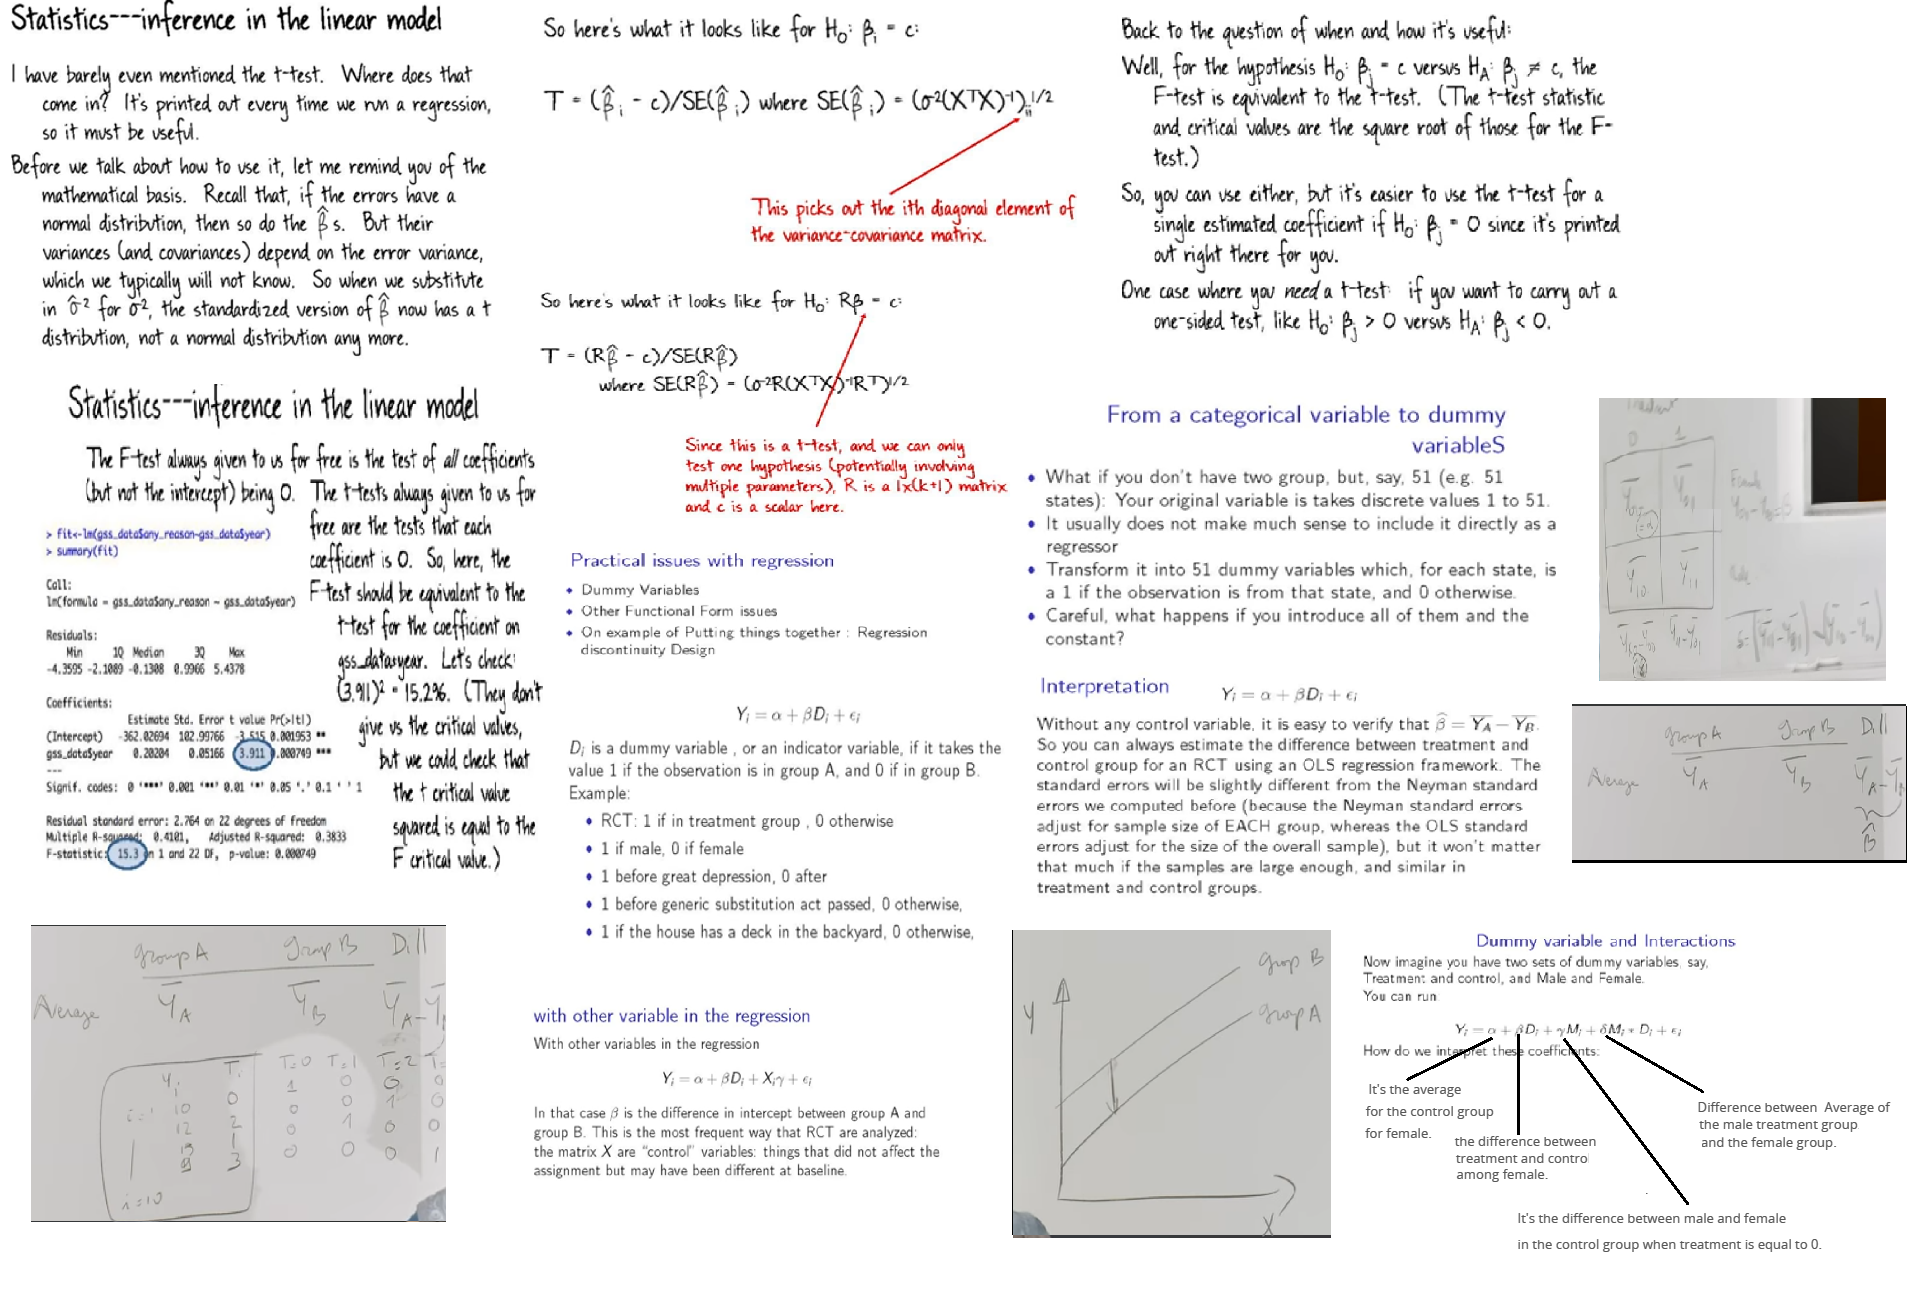 Statistics---inference in the linear model
I have barely even mentioned the t-test. Where does that
come in? It's printed out every time we run a regression,
so it must be useful.
Before we talk about how to use it, let me remind you of the
mathematical basis. Recall that, if the errors have a
normal distribution, then so do the β̂s. But their
variances (and covariances) depend on the error variance,
which we typically will not know. So when we substitute
in σ̂² for σ², the standardized version of β̂ now has a t
distribution, not a normal distribution any more.
Statistics---inference in the linear model
The F-test always given to us for free is the test of all coefficients
(but not the intercept) being 0. The t-tests always given to us for
free are the tests that each
coefficient is 0. So, here, the
F-test should be equivalent to the
t-test for the coefficient on
gss_data$year. Let's check:
(3.911)² = 15.296. (They don't
give us the critical values,
but we could check that
the t critical value
squared is equal to the
F critical value.)
> fit<-lm(gss_data$any_reason~gss_data$year)
> summary(fit)
Call:
lm(formula = gss_data$any_reason ~ gss_data$year)
Residuals:
Min 1Q Median 3Q Max
-4.3595 -2.1089 -0.1308 0.9966 5.4378
Coefficients:
Estimate Std. Error t value Pr(>|t|)
(Intercept) -362.02694 102.99766 -3.515 0.001953 **
gss_data$year 0.20204 0.05166 3.911 0.000749 ***
---
Signif. codes: 0 '***' 0.001 '**' 0.01 '*' 0.05 '.' 0.1 ' ' 1
Residual standard error: 2.764 on 22 degrees of freedom
Multiple R-squared: 0.4101, Adjusted R-squared: 0.3833
F-statistic: 15.3 on 1 and 22 DF, p-value: 0.000749
group A group B Diff
Average Y̅A Y̅B Y̅A-Y̅
Yi Ti T=0 T=1 T=2 T=
i=10
So here's what it looks like for H₀: βᵢ = c:
T = (β̂ᵢ - c)/SE(β̂ᵢ) where SE(β̂ᵢ) = (σ²(XᵀX)⁻¹)ᵢᵢ^1/2
This picks out the ith diagonal element of
the variance-covariance matrix.
So here's what it looks like for H₀: Rβ = c:
T = (Rβ̂ - c)/SE(Rβ̂)
where SE(Rβ̂) = (σ²R(XᵀX)⁻¹Rᵀ)^1/2
Since this is a t-test, and we can only
test one hypothesis (potentially involving
multiple parameters), R is a 1x(k+1) matrix
and c is a scalar here.
Practical issues with regression
• Dummy Variables
• Other Functional Form issues
• On example of Putting things together : Regression
discontinuity Design
Yᵢ = α + βDᵢ + εᵢ
Dᵢ is a dummy variable , or an indicator variable, if it takes the
value 1 if the observation is in group A, and 0 if in group B.
Example:
• RCT: 1 if in treatment group , 0 otherwise
• 1 if male, 0 if female
• 1 before great depression, 0 after
• 1 before generic substitution act passed, 0 otherwise,
• 1 if the house has a deck in the backyard, 0 otherwise,
with other variable in the regression
With other variables in the regression
Yᵢ = α + βDᵢ + Xᵢγ + εᵢ
In that case β is the difference in intercept between group A and
group B. This is the most frequent way that RCT are analyzed:
the matrix X are "control" variables: things that did not affect the
assignment but may have been different at baseline.
Back to the question of when and how it's useful:
Well, for the hypothesis H₀: βⱼ = c versus H_A: βⱼ ≠ c, the
F-test is equivalent to the t-test. (The t-test statistic
and critical values are the square root of those for the F-
test.)
So, you can use either, but it's easier to use the t-test for a
single estimated coefficient if H₀: βⱼ = 0 since it's printed
out right there for you.
One case where you need a t-test: if you want to carry out a
one-sided test, like H₀: βⱼ > 0 versus H_A: βⱼ < 0.
From a categorical variable to dummy
variableS
• What if you don't have two group, but, say, 51 (e.g. 51
states): Your original variable is takes discrete values 1 to 51.
• It usually does not make much sense to include it directly as a
regressor
• Transform it into 51 dummy variables which, for each state, is
a 1 if the observation is from that state, and 0 otherwise.
• Careful, what happens if you introduce all of them and the
constant?
Interpretation Yᵢ = α + βDᵢ + εᵢ
Without any control variable, it is easy to verify that β̂ = Y̅A − Y̅B.
So you can always estimate the difference between treatment and
control group for an RCT using an OLS regression framework. The
standard errors will be slightly different from the Neyman standard
errors we computed before (because the Neyman standard errors
adjust for sample size of EACH group, whereas the OLS standard
errors adjust for the size of the overall sample), but it won't matter
that much if the samples are large enough, and similar in
treatment and control groups.
group A group B Diff
Average Y̅A Y̅B Y̅A-Y̅B
β̂
Y
group B
group A
X
Dummy variable and Interactions
Now imagine you have two sets of dummy variables, say,
Treatment and control, and Male and Female.
You can run
Yᵢ = α + βDᵢ + γMᵢ + δMᵢ * Dᵢ + εᵢ
How do we interpret these coefficients:
It's the average
for the control group
for female.
the difference between
treatment and control
among female.
Difference between Average of
the male treatment group
and the female group.
It's the difference between male and female
in the control group when treatment is equal to 0.